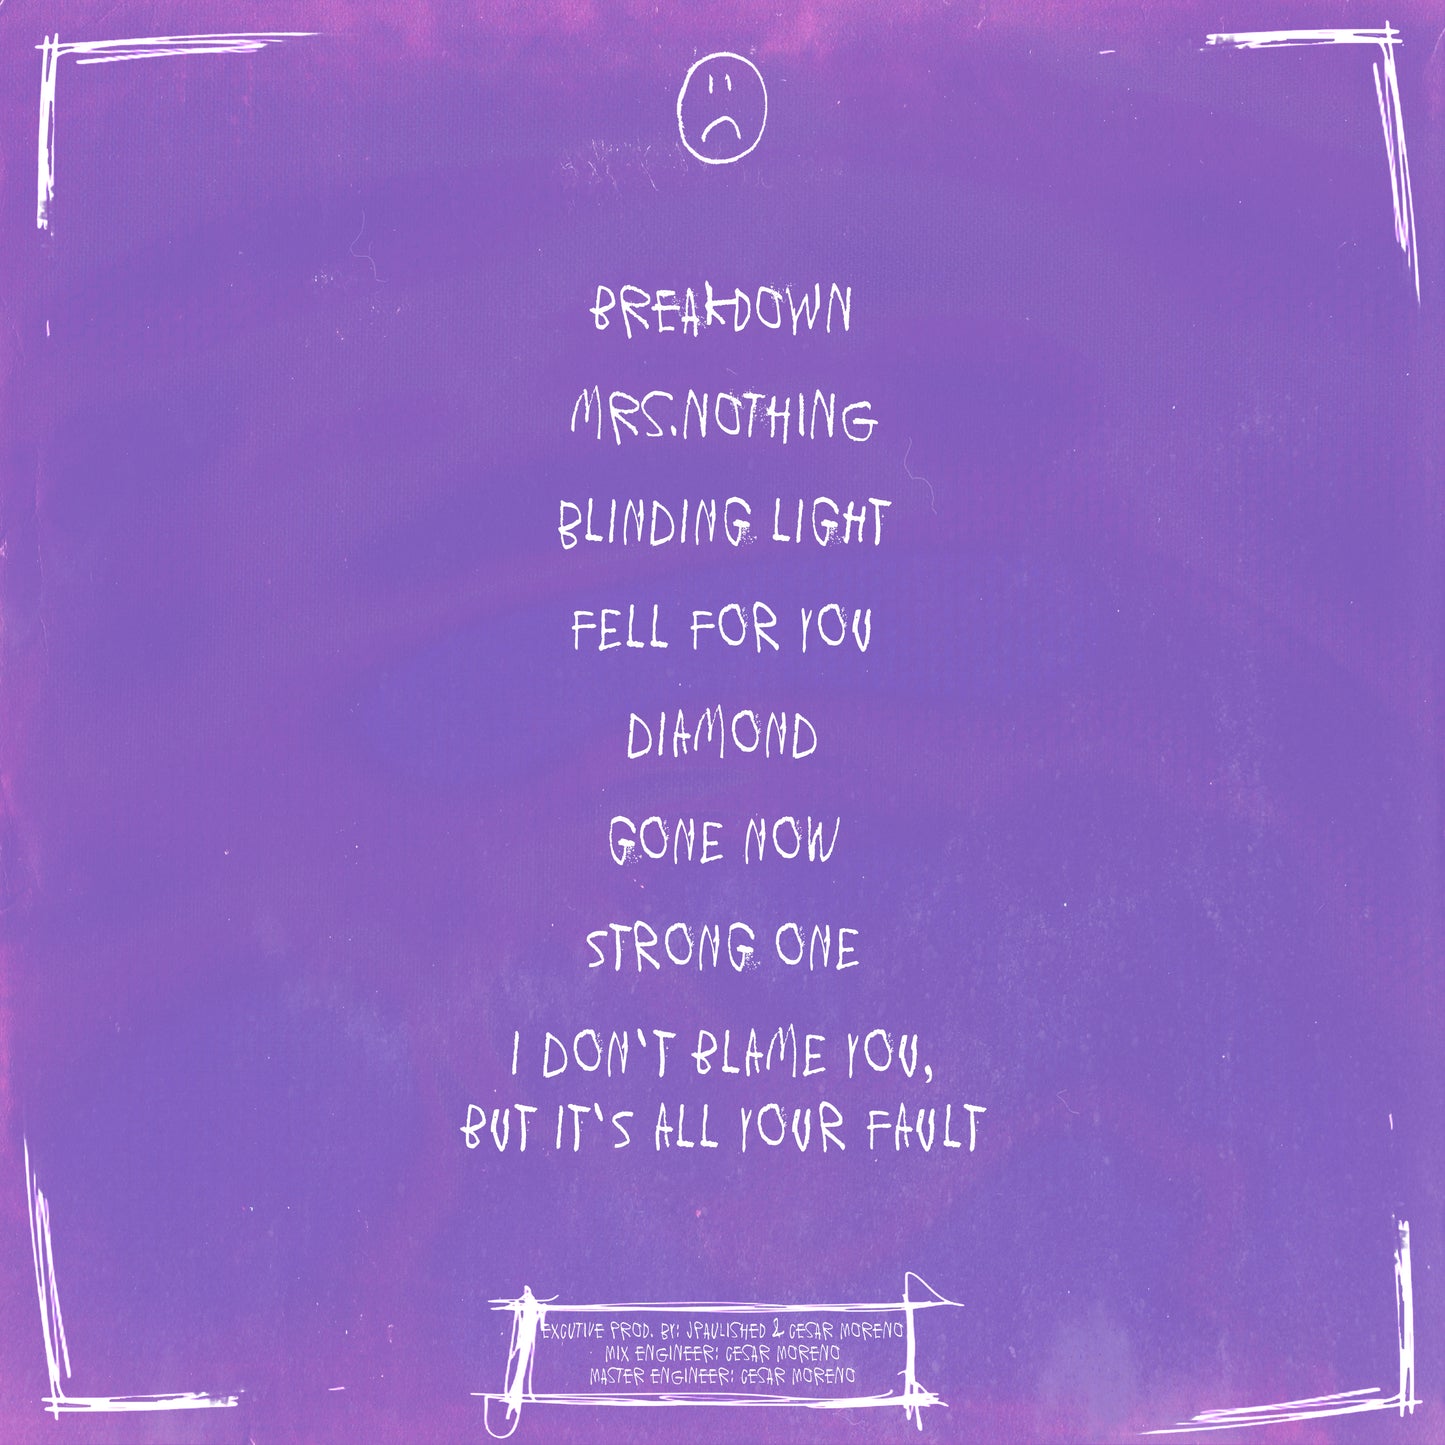 BREAKDOWN
MRS.NOTHING
BLINDING LIGHT
FELL FOR YOU
DIAMOND
GONE NOW
STRONG ONE
I DON'T BLAME YOU,
BUT IT'S ALL YOUR FAULT
EXCUTIVE PROD. BY: JPAULISHED & CESAR MORENO
MIX ENGINEER: CESAR MORENO
MASTER ENGINEER: CESAR MORENO